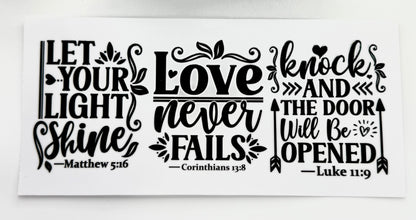 LET
YOUR
LIGHT
Shine
—Matthew 5:16
LOVE
never
FAILS
—Corinthians 13:8
knock
AND
THE DOOR
Will Be
OPENED
—Luke 11:9